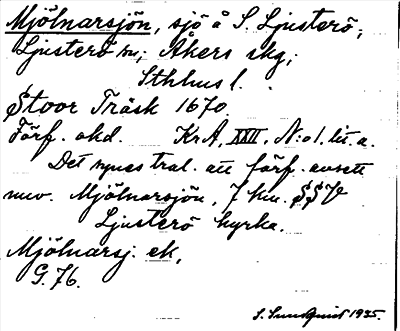 Mjölnarsjön, sjö å S. Ljusterö;
Ljusterö sn; Åkers skg;
Sthlms l.
Stoor Träsk 1670
Förf. okd. KrA, XXII. N:o 1. lit. a.
Det synes tral. att förf. avsett
nuv. Mjölnarsjön, 7 km. SSV
Ljusterö kyrka.
Mjölnarsj. ek,
G. 76.
S. Sundquist 1935.